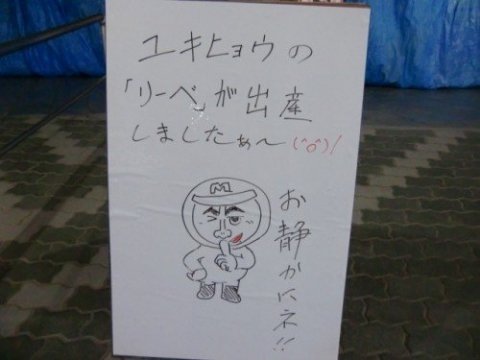 ユキヒョウの
「リーベ」が出産
しましたぁ〜 (^o^)/
お静かにネ!!
M